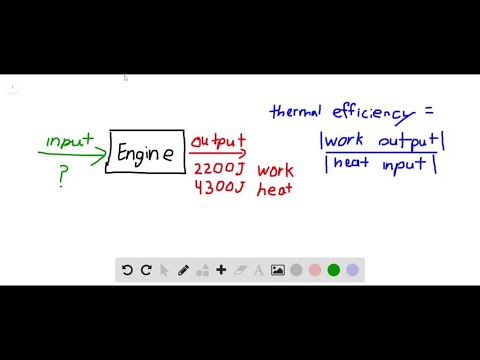 thermal efficiency =
|work output|
|heat input|
input
?
Engine
output
2200J work
4300J heat
A